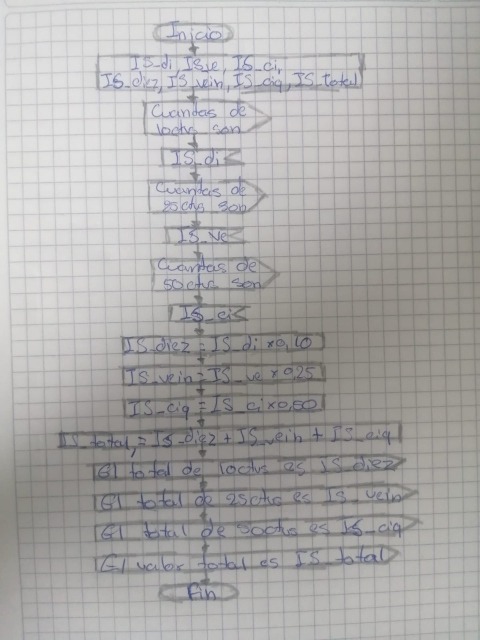 Inicio
IS_di, IS_ve, IS_ci,
IS_diez, IS_vein, IS_ciq, IS_total
Cuantas de
10ctvs son
IS_di
Cuantas de
25ctvs son
IS_ve
Cuantas de
50ctvs son
IS_ci
IS_diez = IS_di x 0,10
IS_vein = IS_ve x 0,25
IS_ciq = IS_ci x 0,50
IS_total = IS_diez + IS_vein + IS_ciq
El total de 10ctvs es IS_diez
El total de 25ctvs es IS_vein
El total de 50ctvs es IS_ciq
El valor total es IS_total
Fin